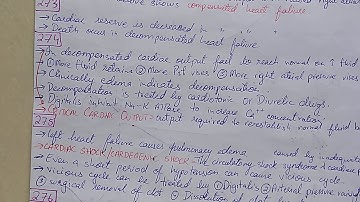 273
shows compensated heart failure
→ Cardiac reserve is decreased in " " "
→ Death occurs in decompensated heart failure
274
→ In decompensated cardiac output fail to reach normal
① More fluid retains ② More Psf rises ③ More right atrial pressure rises
→ Clinically edema indicates decompensation.
→ Decompensation is treated by cardiotonic or Diuretic drugs.
→ Digitalis inhibit Na-K ATPase to increase Ca++ concentration
→ CRITICAL CARDIAC OUTPUT → output required to reestablish normal fluid
275
→ left heart failure causes pulmonary edema
→ CARDIAC SHOCK/CARDIOGENIC SHOCK → The circulatory shock syndrome caused by inadequate cardiac
→ Even a short period of hypotension can cause vicious cycle.
→ Vicious cycle can be treated by ① Digitalis ② Arterial pressure
③ surgical removal of clot ④ Dissolution of clot
276